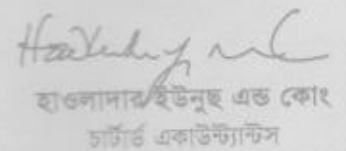 হাওলাদার ইউনুছ এন্ড কোং
চার্টার্ড একাউন্ট্যান্টস